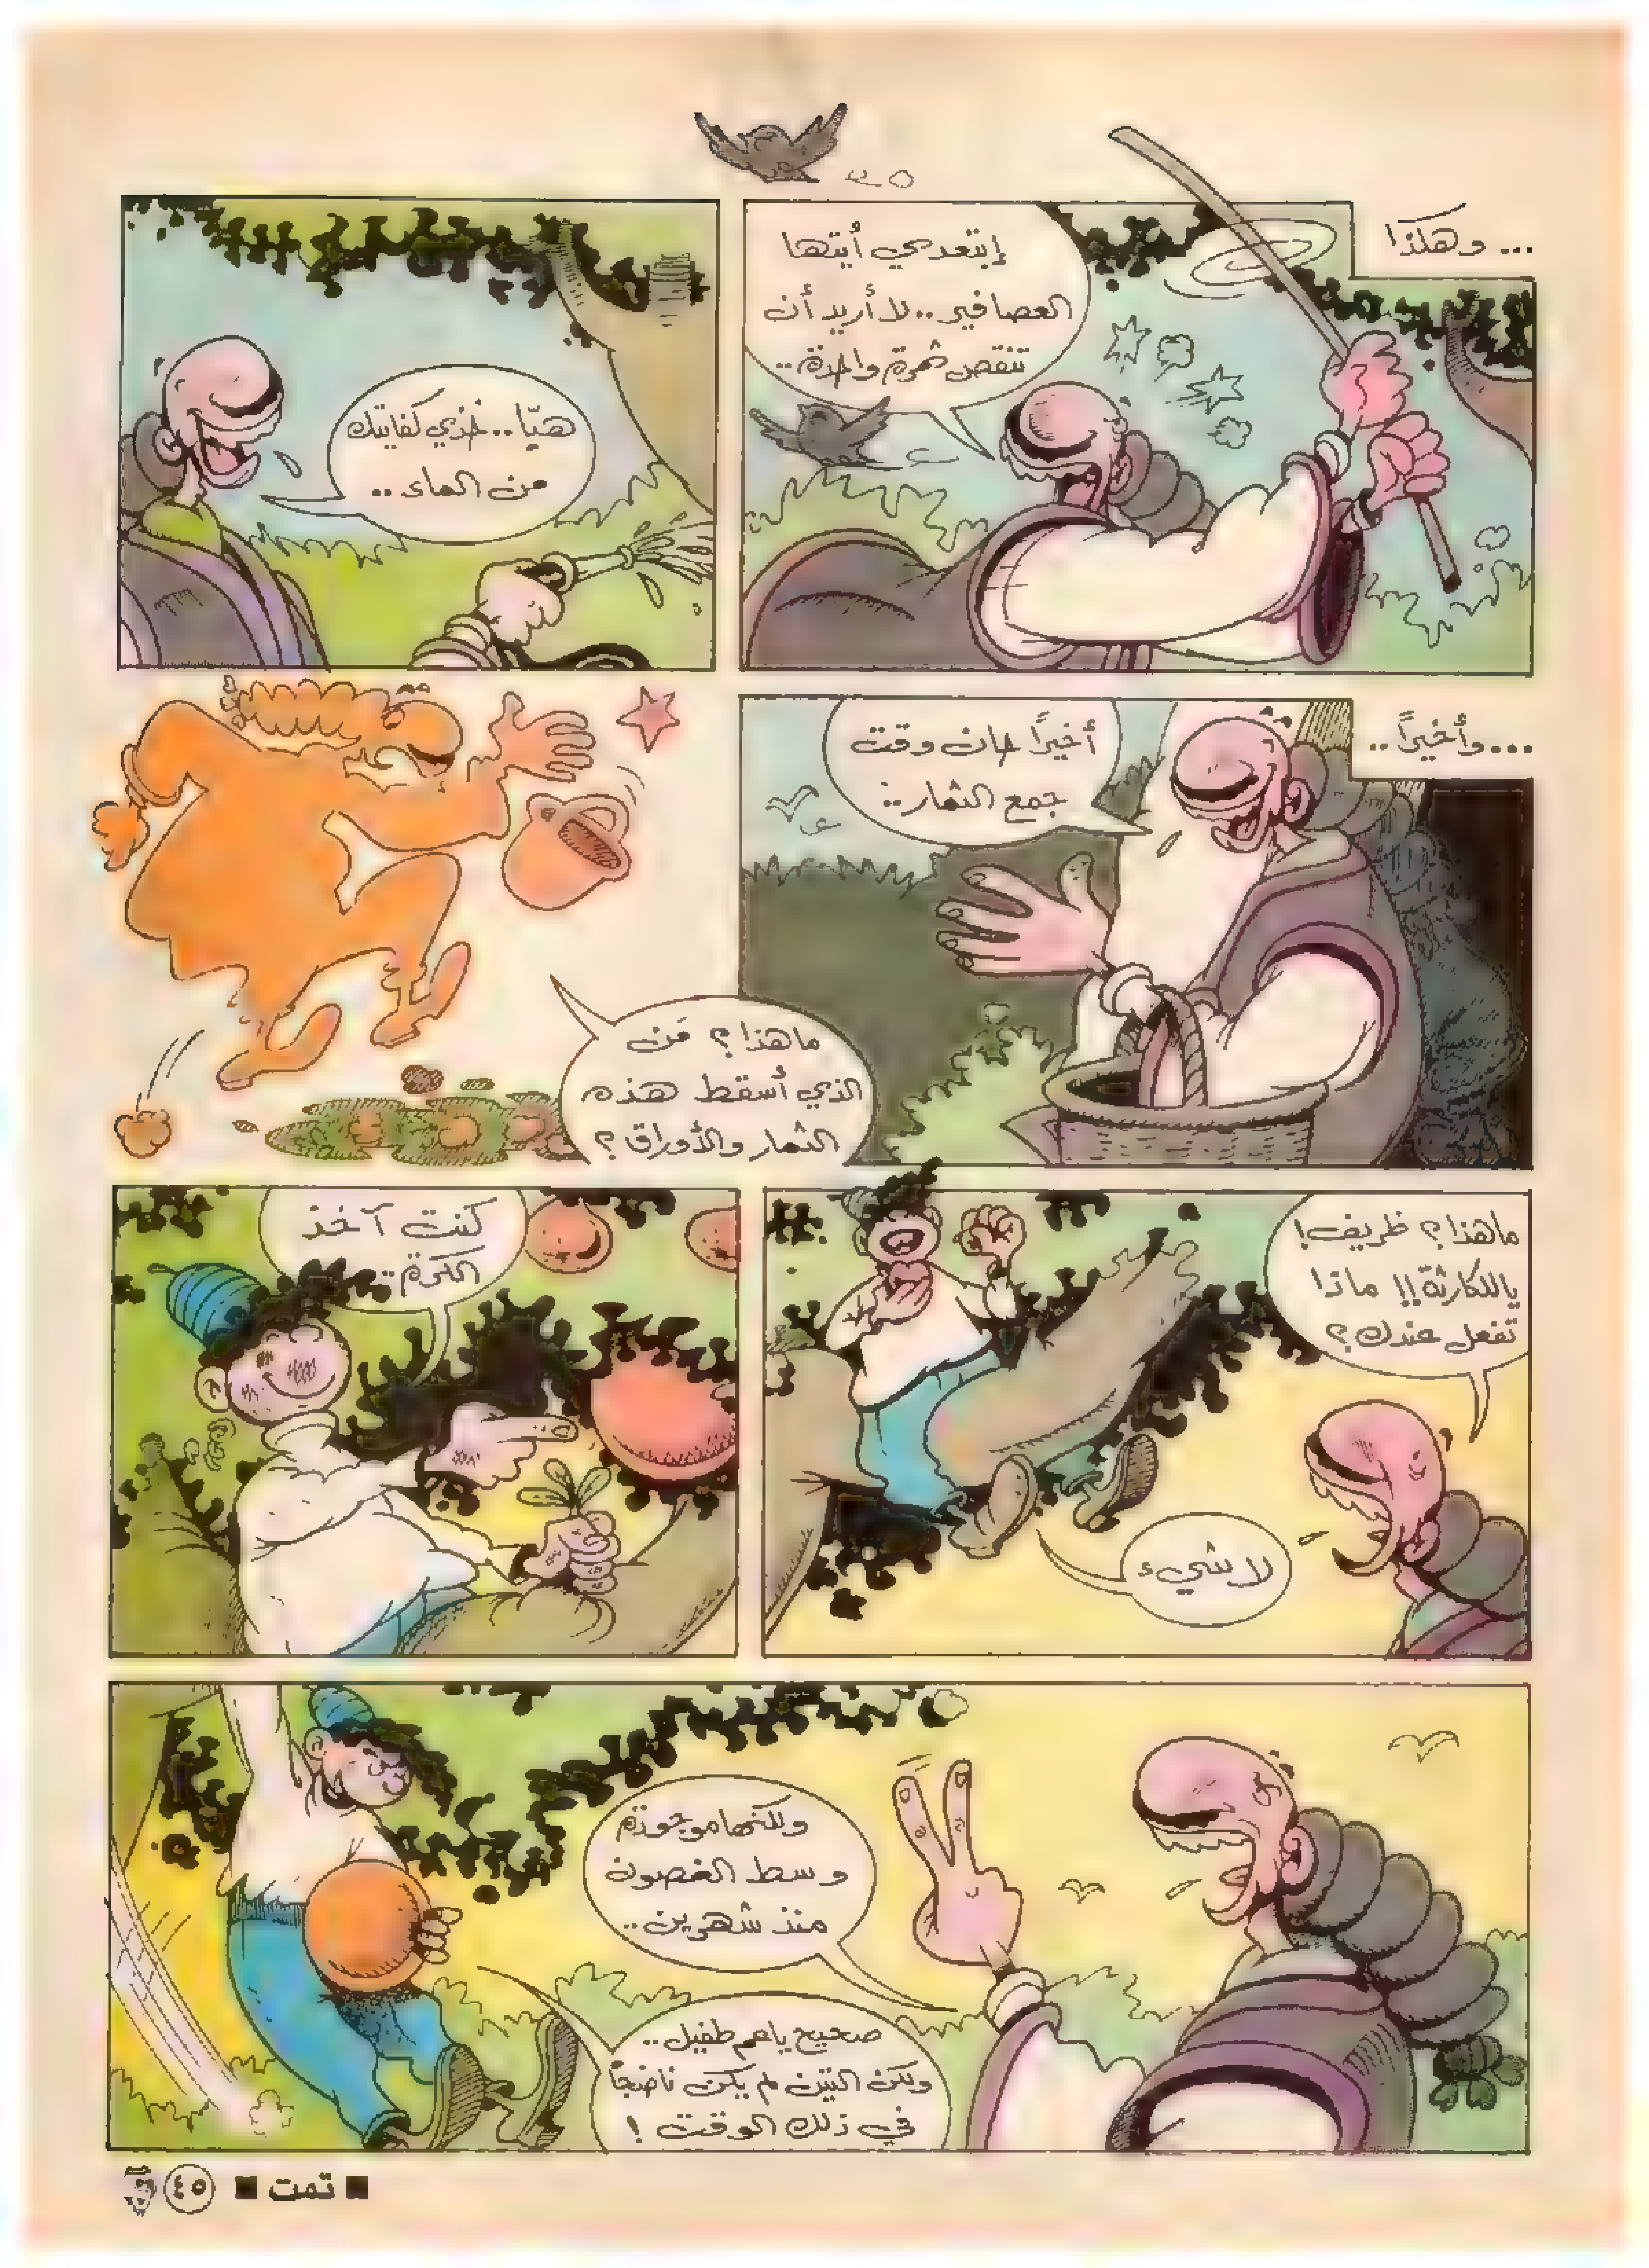 ... وهكذا
إبتعدي أيتها
العصافير.. لا أريد أن
تنقص ثمرة واحدة..
هيّا.. خذي كفايتك
من الماء..
... وأخيراً..
أخيراً حان وقت
جمع الثمار..
ماهذا؟ مَن
الذي أسقط هذه
الثمار والأوراق؟
ماهذا؟ ظريف!
ياللكارثة!! ماذا
تفعل عندك؟
لا شيء
كنت آخذ
الكرة..
ولكنها موجودة
وسط الغصون
منذ شهرين..
صحيح ياعم طفيل..
ولكن التين لم يكن ناضجاً
في ذلك الوقت!
■ تمت ■
٤٥